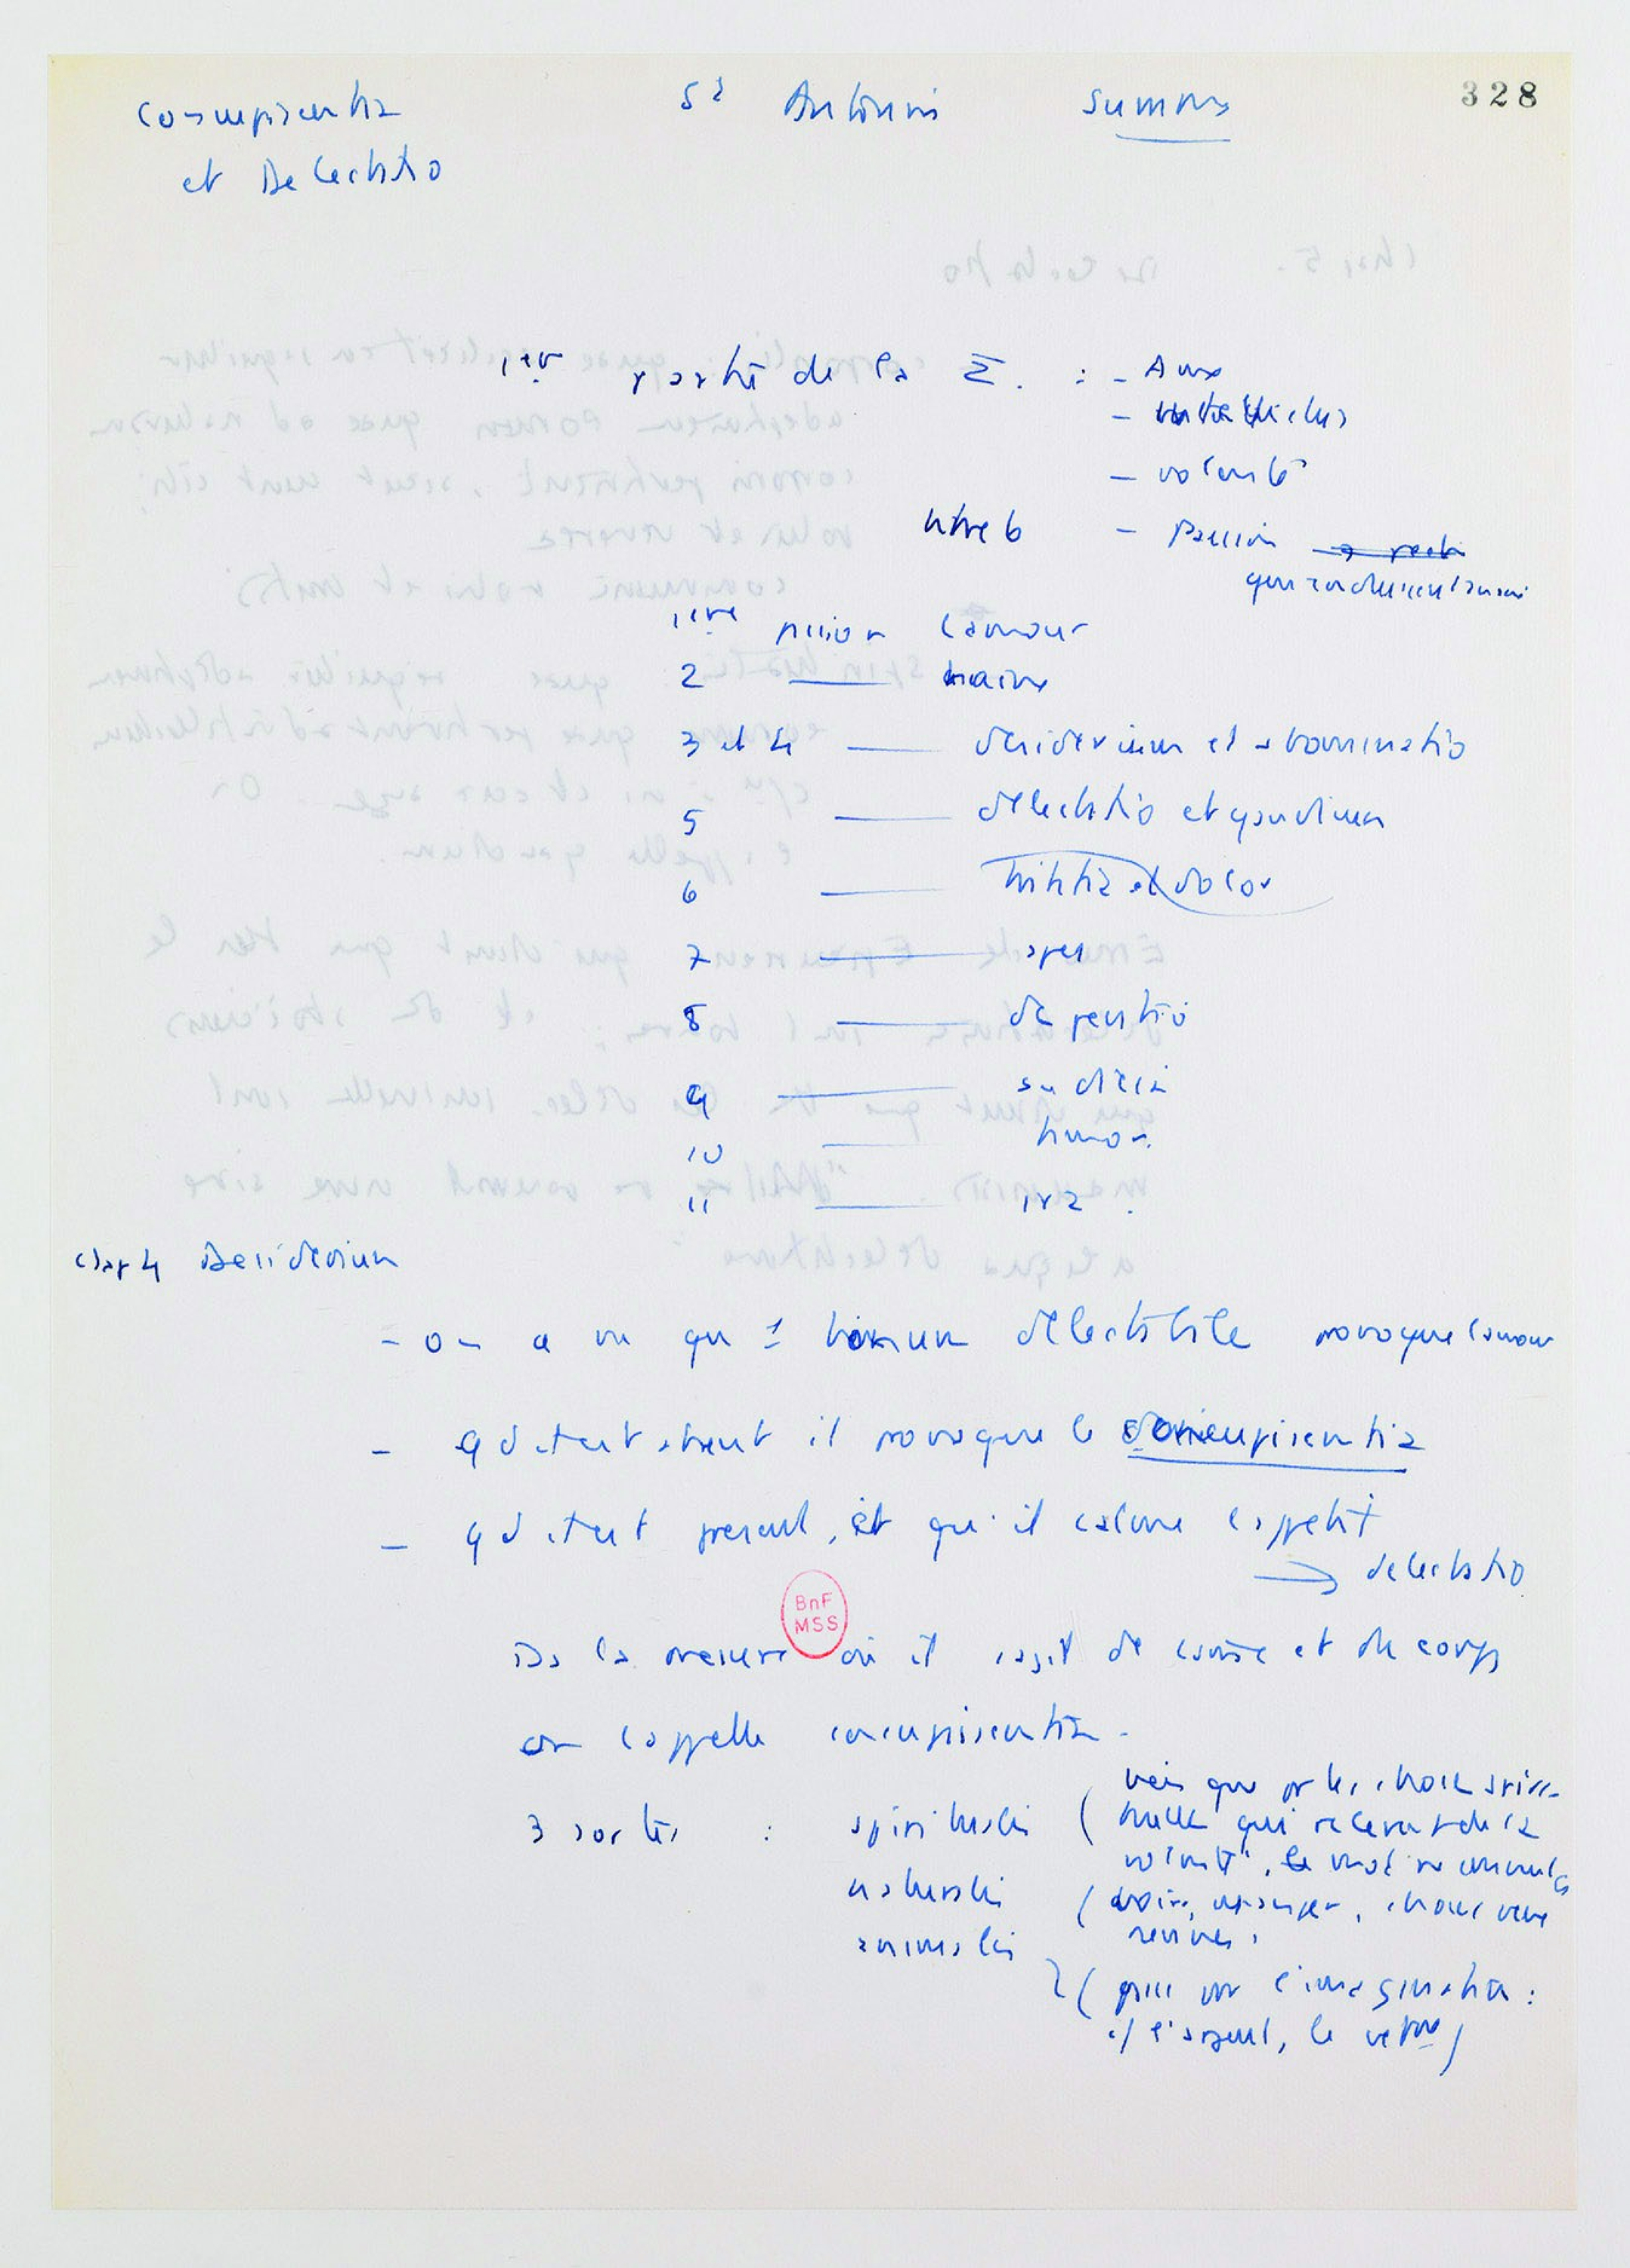 Concupiscentia St Antonin Summa 328
et Delectatio
1ère partie de la Σ. : - Ame
- intellectus
- volonté
titre 6 - Passion
1ère passion l'amour
2 ——— haine
3 et 4 —— desiderium et abominatio
5 ——— delectatio et gaudium
6 ——— tristitia et dolor
7 ——— spes
8 ——— desperatio
9 ——— audacia
10 ——— timor.
11 ——— ira.
Chap 4 Desiderium
- on a vu que le bonum delectabile provoque l'amour
- qd il est absent il provoque la concupiscentia
- qd il est present, et qu'il calme l'appetit
→ delectatio
Ds la mesure où il s'agit de l'ame et du corps
on l'appelle concupiscentia.
3 sortes : spiritualis (mais que pr les choses spiri-
tuelles qui relevent de la
volonté, le mot ne convient pas
naturalis (boire, manger, choses
animalis
(passe par l'imagination :
cf l'argent, le
BnF
MSS